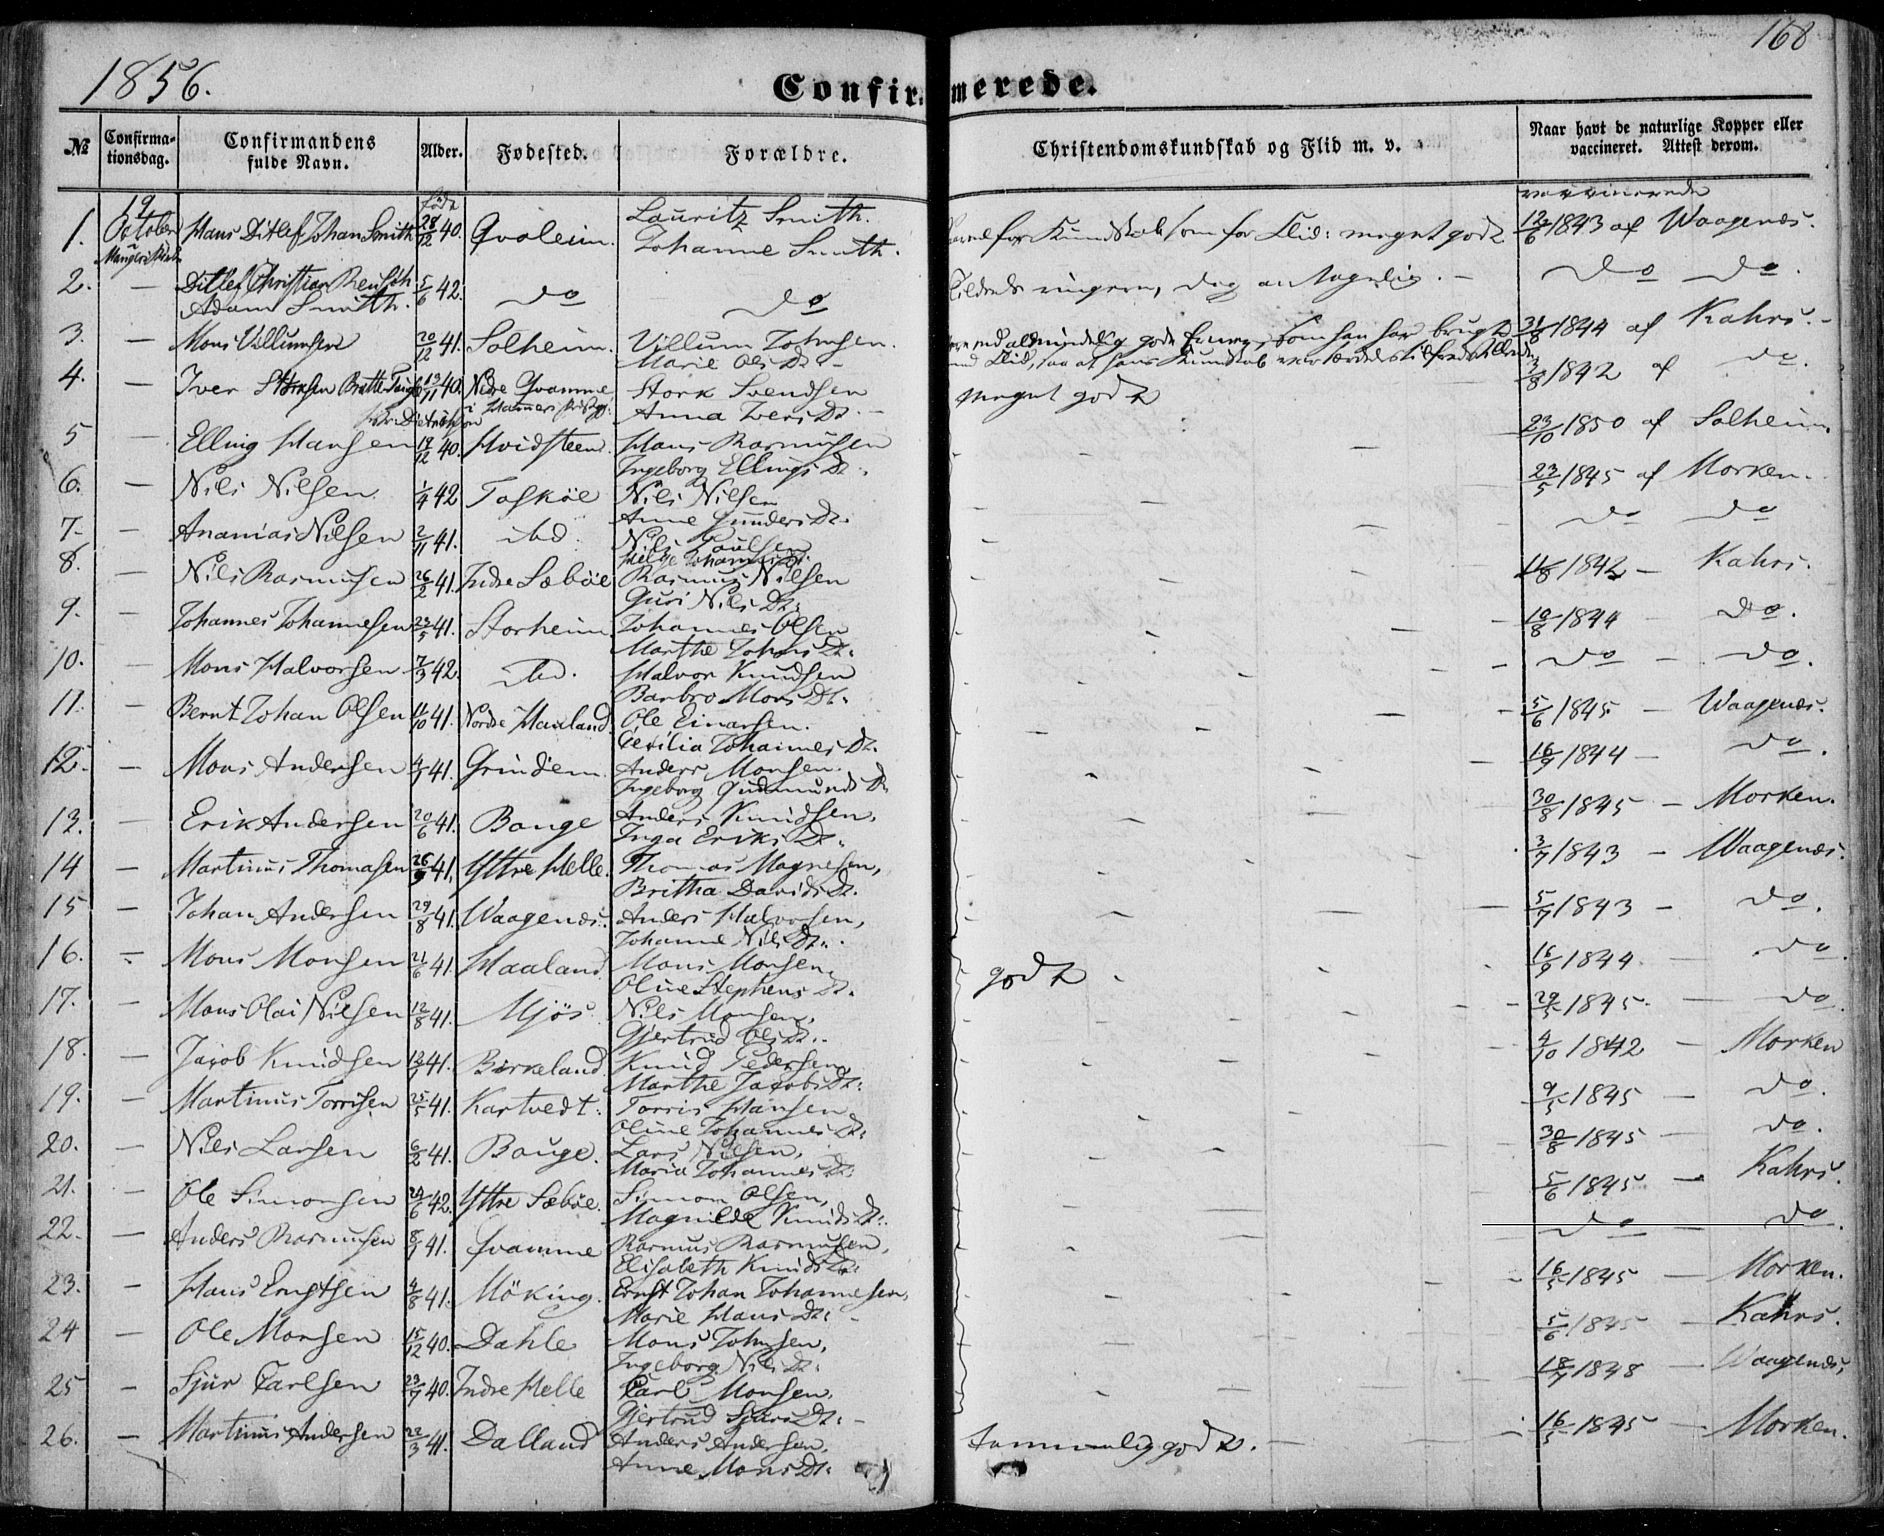 168
1856.
Confirmerede.
№ Confirmationsdag. Confirmandens fulde Navn. Alder. Fødested. Forældre. Christendomskundskab og Flid m. v. Naar havt de naturlige Kopper eller vaccineret. Attest derom.
født vaccinerede
1. 19 October Mangers Kirke Hans Ditlef Johan Smith 28/12 40. Qvaleim. Lauritz Smith. Johanne Smith. for Kundskab som for Flid: meget godt 12/6 1843 af Waagenæs.
2. — Ditlef Christian Adam Smith. 5/6 42. do do ringere, dog antagelig. — do do.
3. — Mons Villumsen 20/12 41. Solheim. Villum Johnsen. Marie Ols Dr. — almindelig gode Evner, som han har brugt med Flid, saa at hans Kundskab 31/8 1844 af Kahrs. —
4. — Iver Storksen 13/11 40. Nedre Qvamme i Hammers Stork Svendsen Anna Ivers Dr. — meget godt 3/8 1842 af do.
5 — Elling Hansen 19/12 40. Hvidsteen. Hans Rasmussen Ingeborg Ellings Dr. 23/10 1850 af Solheim.
6. — Nils Nilsen 1/4 42 Toskøe Nils Nilsen Anne Gunders Dr. 23/5 1845 af Morken.
7. — Ananias Nilsen 2/11 41. ibd. Nils Poulsen Johannes Dr. do do
8. — Nils Rasmussen 26/2 41. Indre Sæbøe Rasmus Nilsen Guri Nils Dr. 11/8 1842 — Kahrs.
9. — Johannes Johannesen 23/5 41. Storheim Johannes Olsen Marthe Johns Dr. 10/8 1844 — do.
10. — Mons Halvorsen 7/3 42. ibd. Halvor Knudsen Barbro Mons Dr. do — do.
11. — Bernt Johan Olsen 11/10 41. Nordre Haaland Ole Einarsen. Cecilia Johannes Dr. 5/6 1845 — Waagenæs.
12. — Mons Andersen 4/7 41. Grindem. Anders Monsen. Ingeborg Gudmunds Dr 16/9 1844 — do.
13. — Erik Andersen 20/6 41. Bouge Anders Knudsen, Inga Eriks Dr. 30/8 1845 — Morken.
14 — Martinus Thomasen 26/9 41. Yttre Helle. Thomas Magnesen, Britha Davids Dr. 3/7 1843 — Waagenæs.
15 — Johan Andersen 29/8 41. Waagenæs. Anders Halvorsen, Johanne Nils Dr. 5/7 1843 — do.
16. — Mons Monsen 21/6 41. Haaland Mons Monsen, Oline Stephens Dr. godt 16/9 1844 — do
17. — Mons Olai Nilsen 12/8 41. Mjøs Nils Monsen, Gjertrud Ols Dr. 29/5 1845. — do
18. — Jacob Knudsen 13/7 41. Birkeland. Knud Pedersen Marthe Jacobs Dr. 4/10 1842 — Morken
19. — Martinus Torrisen 25/5 41. Kartvedt. Torris Hansen Oline Johannes Dr. 9/5 1845 — do.
20. — Nils Larsen 6/2 41. Bouge. Lars Nilsen, Maria Johannes Dr. 30/8 1845 — do.
21. — Ole Simonsen 24/6 42. Yttre Sæbøe. Simon Olsen, Magnilde Knuds Dr. 5/6 1845 — Kahrs.
22. — Anders Rasmussen 8/1 41. Qvamme Rasmus Rasmussen, Elisabeth Knuds Dr. do — do.
23. — Hans Ernstsen 4/8 41. Möking. Ernst Johan Johannesen, Marie Hans Dr. — 16/5 1845 — Morken.
24 — Ole Monsen 15/12 40. Dahle Mons Johnsen, Ingeborg Nils Dr. 5/6 1845 — Kahrs.
25 — Sjur Carlsen 23/7 40. Indre Helle Carl Monsen. Gjertrud Sjurs Dr. — 18/7 1838 — Waagenæs,
26. — Martinus Andersen 22/3 41. Dalland Anders Andersen, Anne Mons Dr. temmelig godt. — 16/5 1845 — Morken.